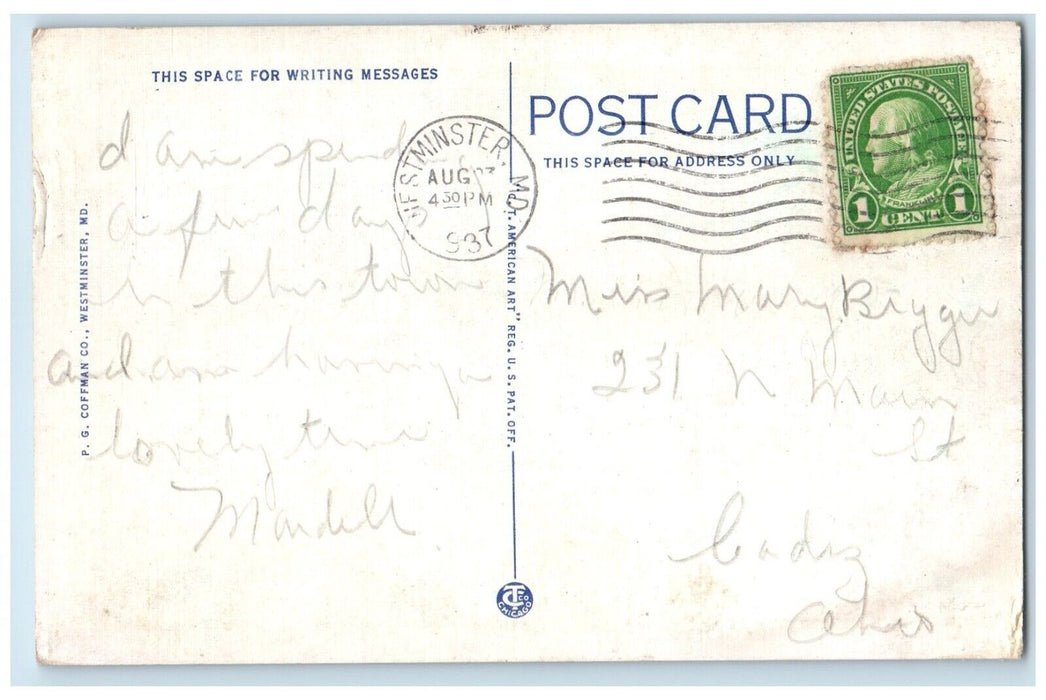 THIS SPACE FOR WRITING MESSAGES
POST CARD
THIS SPACE FOR ADDRESS ONLY
UNITED STATES POSTAGE
FRANKLIN
1 CENT 1
WESTMINSTER, MD.
AUG
4 30 PM
1937
I am spend
a few days
in this town
and am having a
lovely time
Mardell
Miss Mary
231 N Main
St
Cadiz
Ohio
P. G. COFFMAN CO., WESTMINSTER, MD.
C. T. AMERICAN ART" REG. U. S. PAT. OFF.
CT CO
CHICAGO